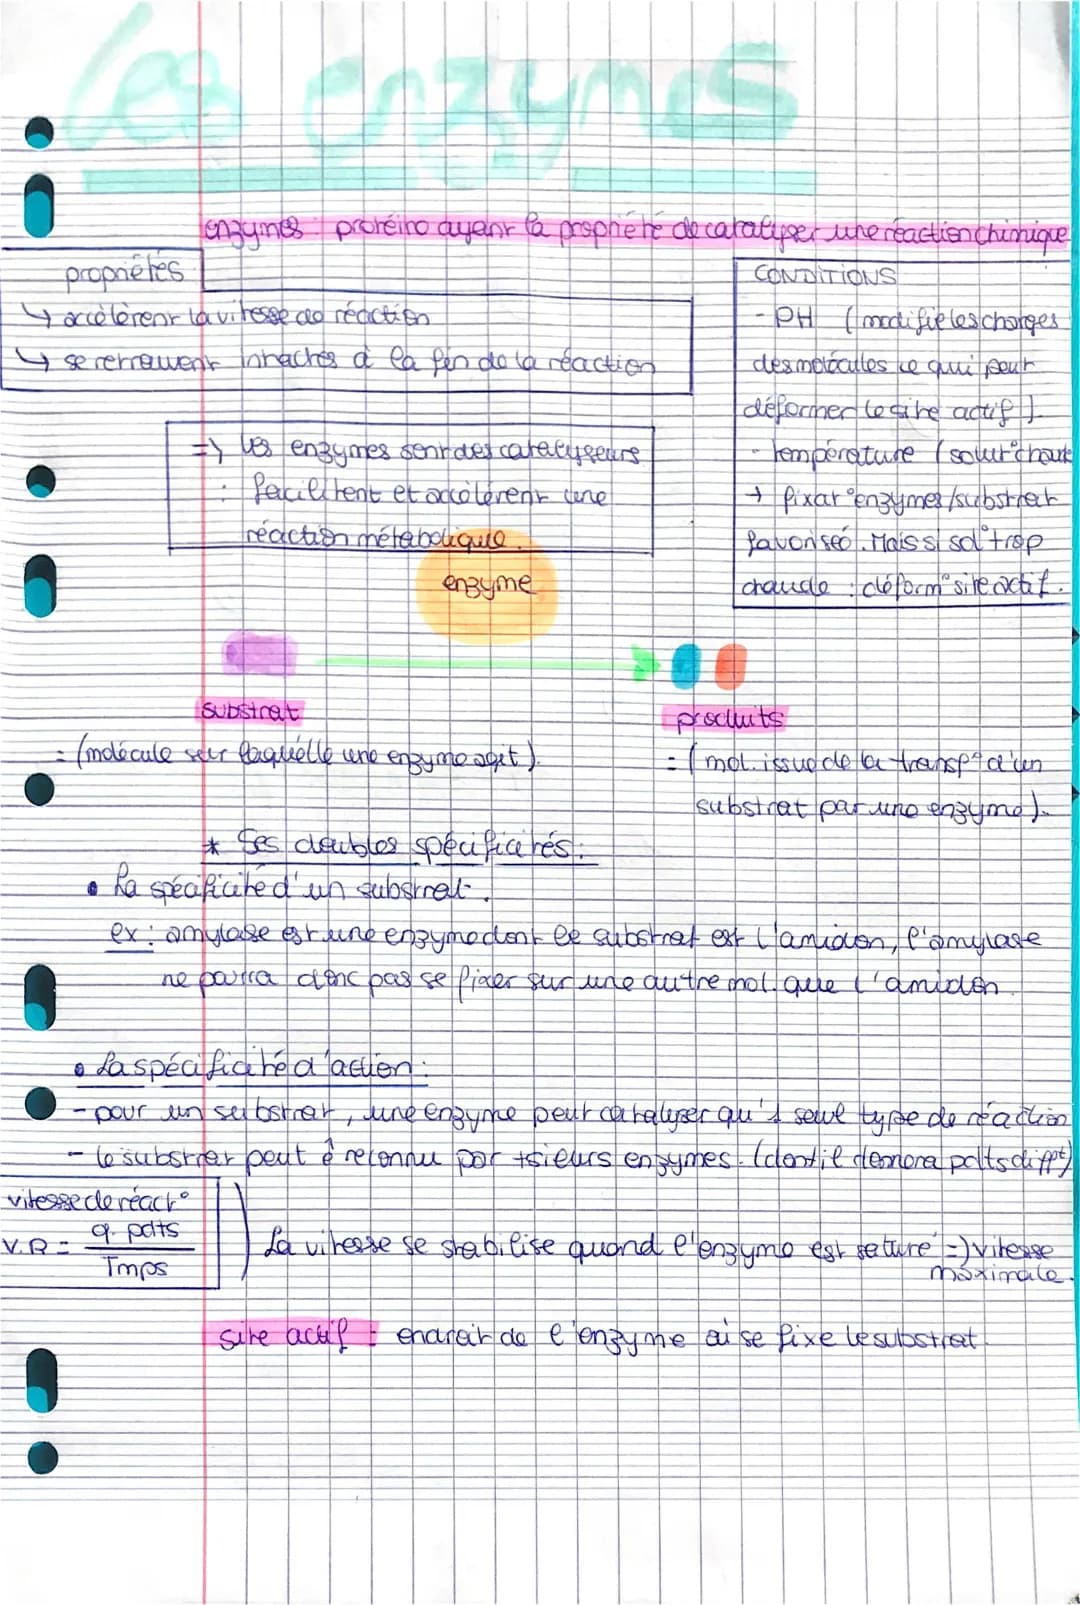 Les enzymes
enzymes : protéine ayant la propriété de catalyser une réaction chimique
propriétés
↳ accélèrent la vitesse de réaction
↳ se retrouvent inhachés à la fin de la réaction
=> les enzymes sont des catalyseurs
: facilitent et accélèrent une
réaction métabolique.
CONDITIONS
- PH (modifie les charges
des molécules ce qui peut
déformer le site actif)
- température (solut° chaude
→ fixat° enzymes/substrat
favorisé. Mais si sol° trop
chaude : déform° site actif.
enzyme
substrat
= (molécule sur laquelle une enzyme agit).
produits
= (mol. issue de la transf° d'un
substrat par une enzyme).
* Ses doubles spécificités :
• La spécificité d'un substrat.
ex : amylase est une enzyme dont le substrat est l'amidon, l'amylase
ne pourra donc pas se fixer sur une autre mol. que l'amidon.
• La spécificité d'action :
- pour un substrat, une enzyme peut catalyser qu'1 seul type de réaction
- le substrat peut ê reconnu par +sieurs enzymes. (dont il donnera pdts difft)
vitesse de réact°
V.R = q. pdts
Tmps
La vitesse se stabilise quand l'enzyme est saturé => vitesse
maximale.
site actif : endroit de l'enzyme où se fixe le substrat.